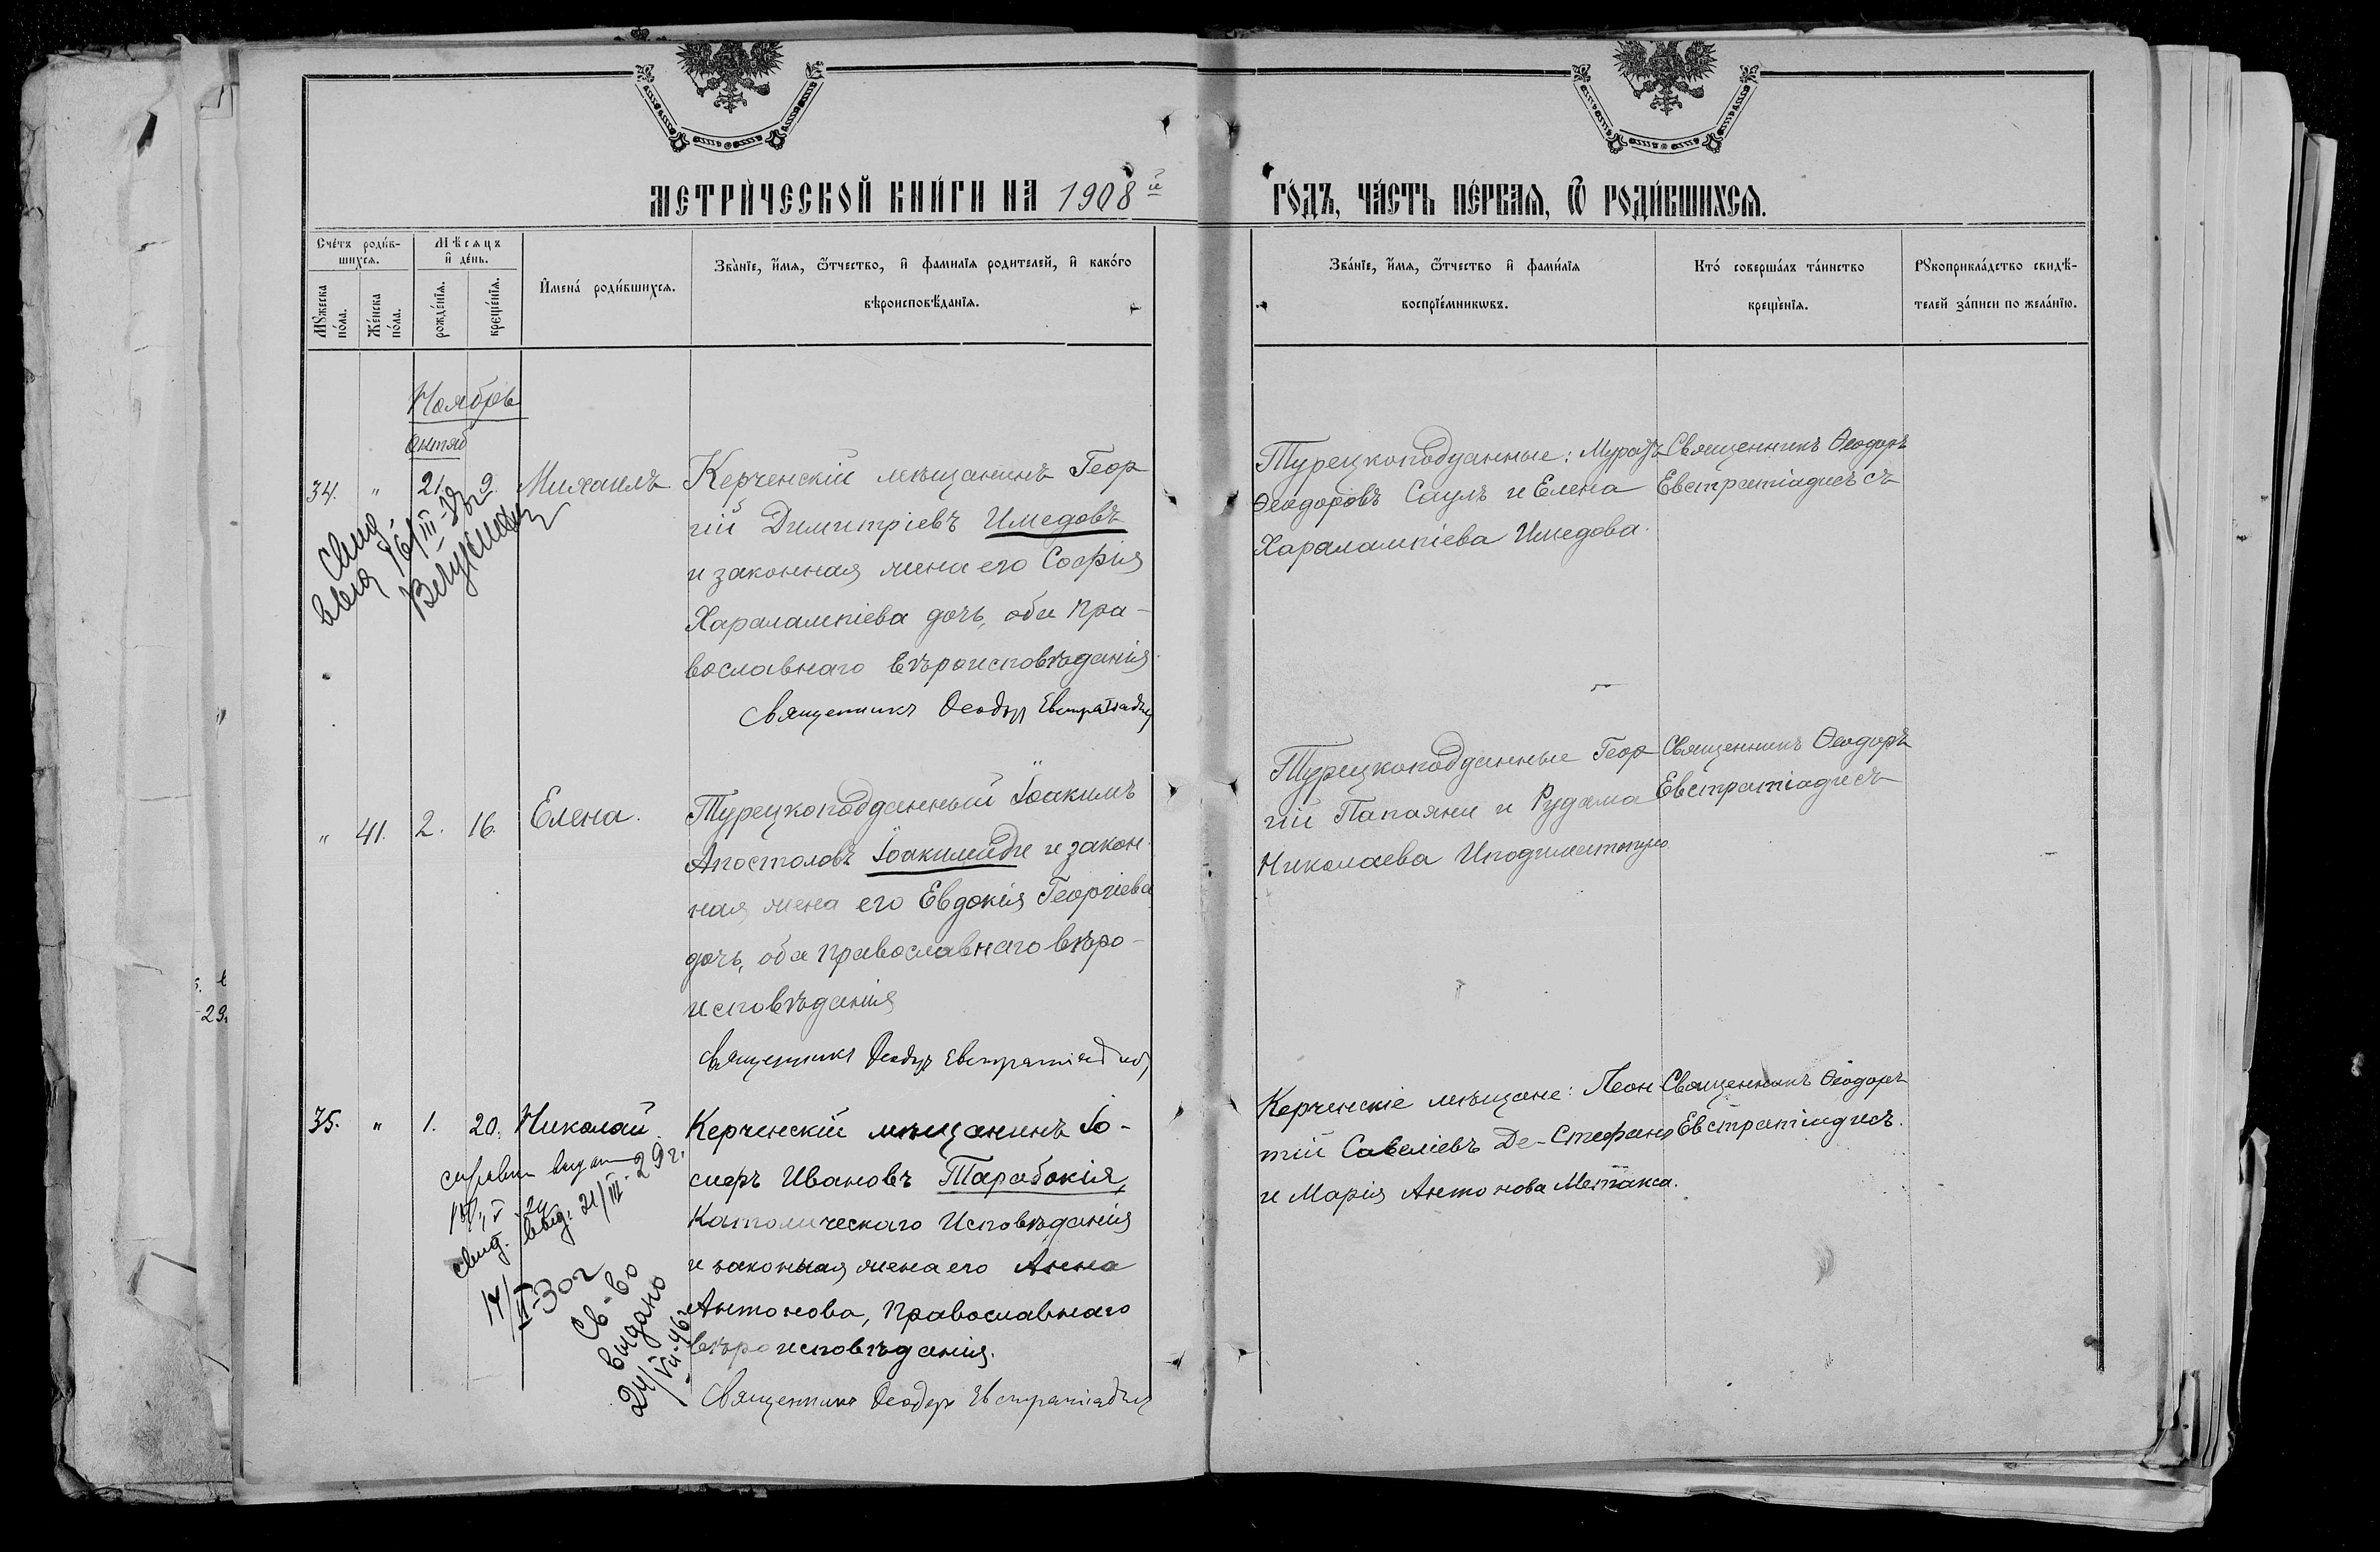 МЕТРИЧЕСКОЙ КНИГИ НА 1908й
ГОДЪ, ЧАСТЬ ПЕРВАЯ, Ѿ РОДИВШИХСЯ.
Счетъ родив-
шихся.
Мѣсяцъ
и день.
Мужеска
пола.
Женска
пола.
рожденїя.
крещенїя.
Имена родившихся.
Званїе, имя, ѿтчество, и фамилїя родителей, и какого
вѣроисповѣданїя.
Званїе, имя, ѿтчество и фамилїя
воспрїемникѡвъ.
Кто совершалъ таинство
крещенїя.
Рукоприкладство свидѣ-
телей записи по желанїю.
Ноябрь
Октяб
34. " 21. 9. Михаилъ
Керченскій мѣщанинъ Геор
гій Димитріевъ Имедовъ
и законная жена его Софія
Харалампіева дочь, оба пра-
вославнаго вѣроисповѣданія.
Священникъ Ѳеодоръ Евстратіадисъ
Турецкоподданные: Муратъ
Ѳеодоровъ Саулъ и Елена
Харалампіева Имедова.
Священникъ Ѳеодоръ
Евстратіадисъ
" 41. 2. 16. Елена.
Турецкоподданный Іоакимъ
Апостоловъ Іоакимиди и закон
ная жена его Евдокія Георгіева
дочь, оба православнаго вѣро-
исповѣданія
Священникъ Ѳеодоръ Евстратіадисъ
Турецкоподданные Геор
гій Папаяни и Рудама
Николаева
Священникъ Ѳеодоръ
Евстратіадисъ
35. " 1. 20. Николай
справка выдан
свид. выд. 21/III-29г.
14/II-30г
Св-во
выдано
24/VII-46г
Керченскій мѣщанинъ Іо-
сифъ Ивановъ Тарабокія,
Католическаго Исповѣданія
и законная жена его Анна
Антонова, Православнаго
вѣроисповѣданія.
Священникъ Ѳеодоръ Евстратіадисъ
Керченскіе мѣщане: Леон
тій Савеліевъ Де-Стефано
и Марія Антонова Метакса.
Священникъ Ѳеодоръ
Евстратіадисъ.